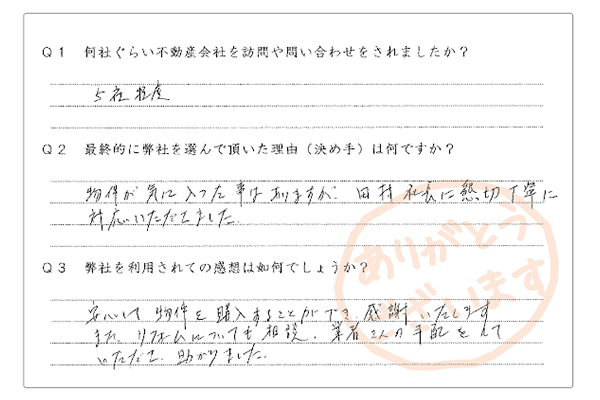 Q1 何社ぐらい不動産会社を訪問や問い合わせをされましたか？
5社程度
Q2 最終的に弊社を選んで頂いた理由（決め手）は何ですか？
物件が気に入った事はありますが、田村社長に懇切丁寧に
対応いただきました。
Q3 弊社を利用されての感想は如何でしょうか？
安心して物件を購入することができ、感謝いたします
また、リフォームについても相談、業者さんの手配をして
いただき、助かりました。
ありがとう
ございます